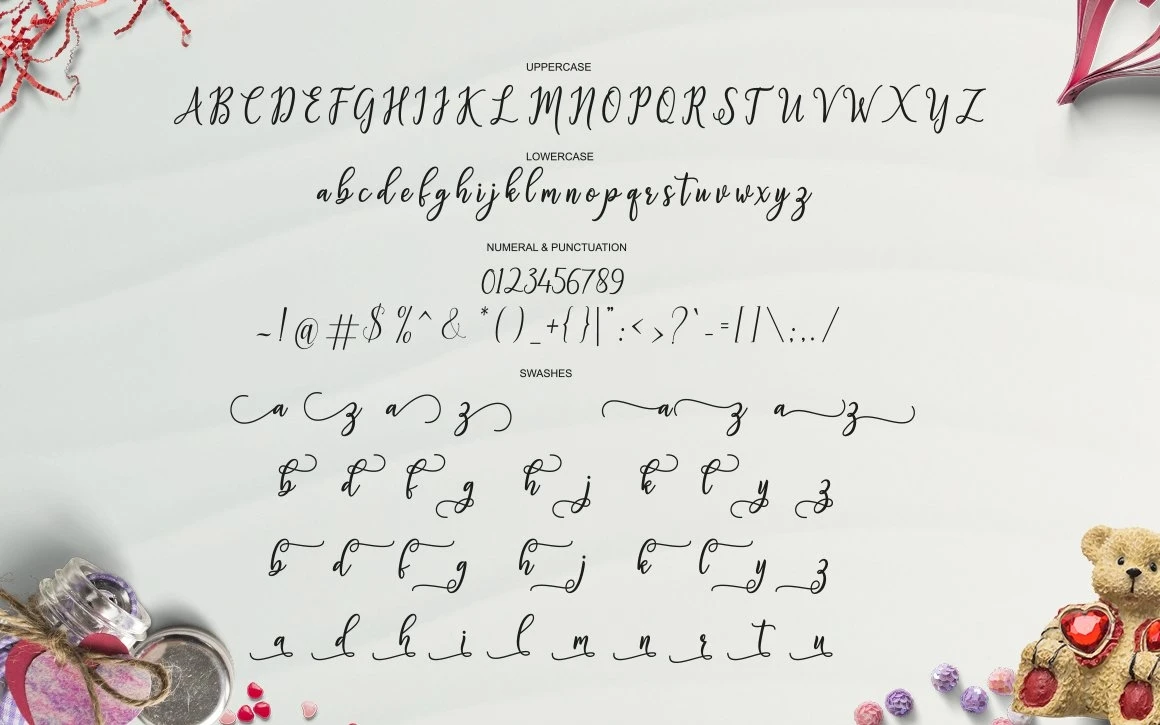 UPPERCASE
ABCDEFGHIJKLMNOPQRSTUVWXYZ
LOWERCASE
abcdefghijklmnopqrstuvwxyz
NUMERAL & PUNCTUATION
0123456789
~!@#$%^& *()_+{}|":<>?`-=[]\;,./
SWASHES
a z a z a z a z
b d f g h j k l y z
b d f g h j k l y z
a d h i l m n r t u